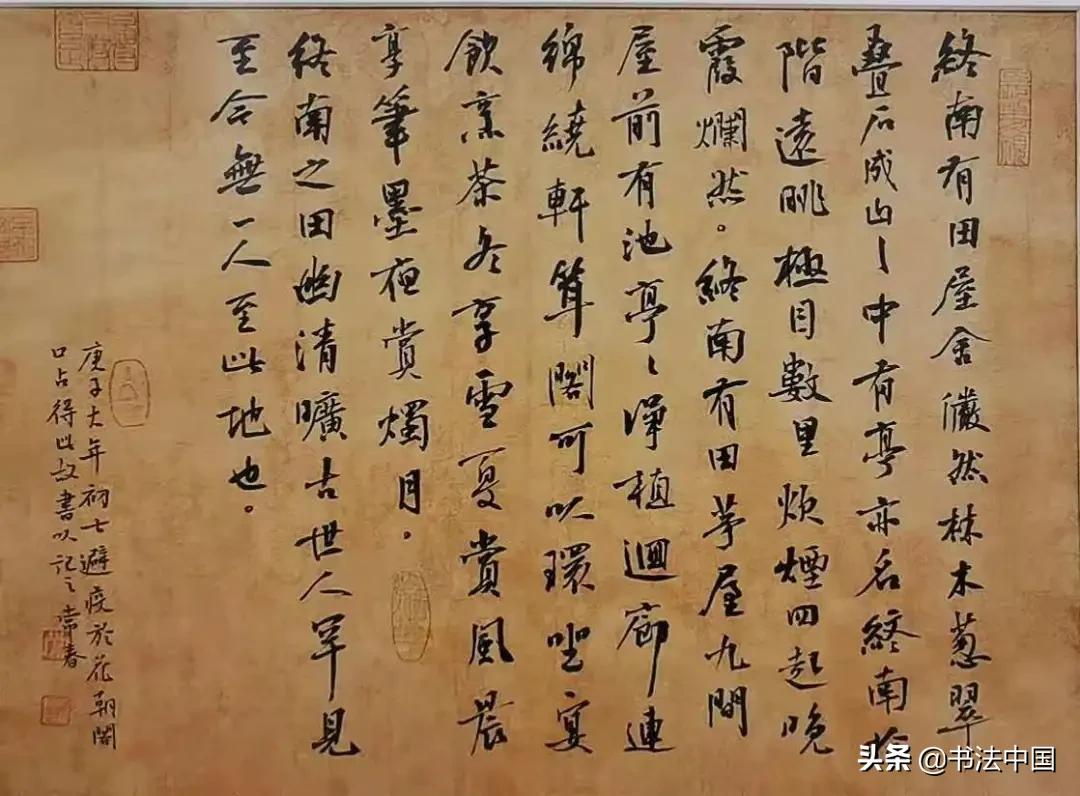 終南有田屋舍儼然林木蔥翠
疊石成山丶中有亭亦名終南拾
階遠眺極目數里炊煙四起晚
霞爛然。終南有田茅屋九間
屋前有池亭丶渾植迴廊連
綿繞軒箕閣可以環坐宴
飲烹茶冬享雪夏賞風晨
享筆墨夜賞燭月。
終南之田幽清曠古世人罕見
至今無一人至此地也。
庚子大年初七避疫於花朝閣
口占得此故書以記之常春
头条 @书法中国